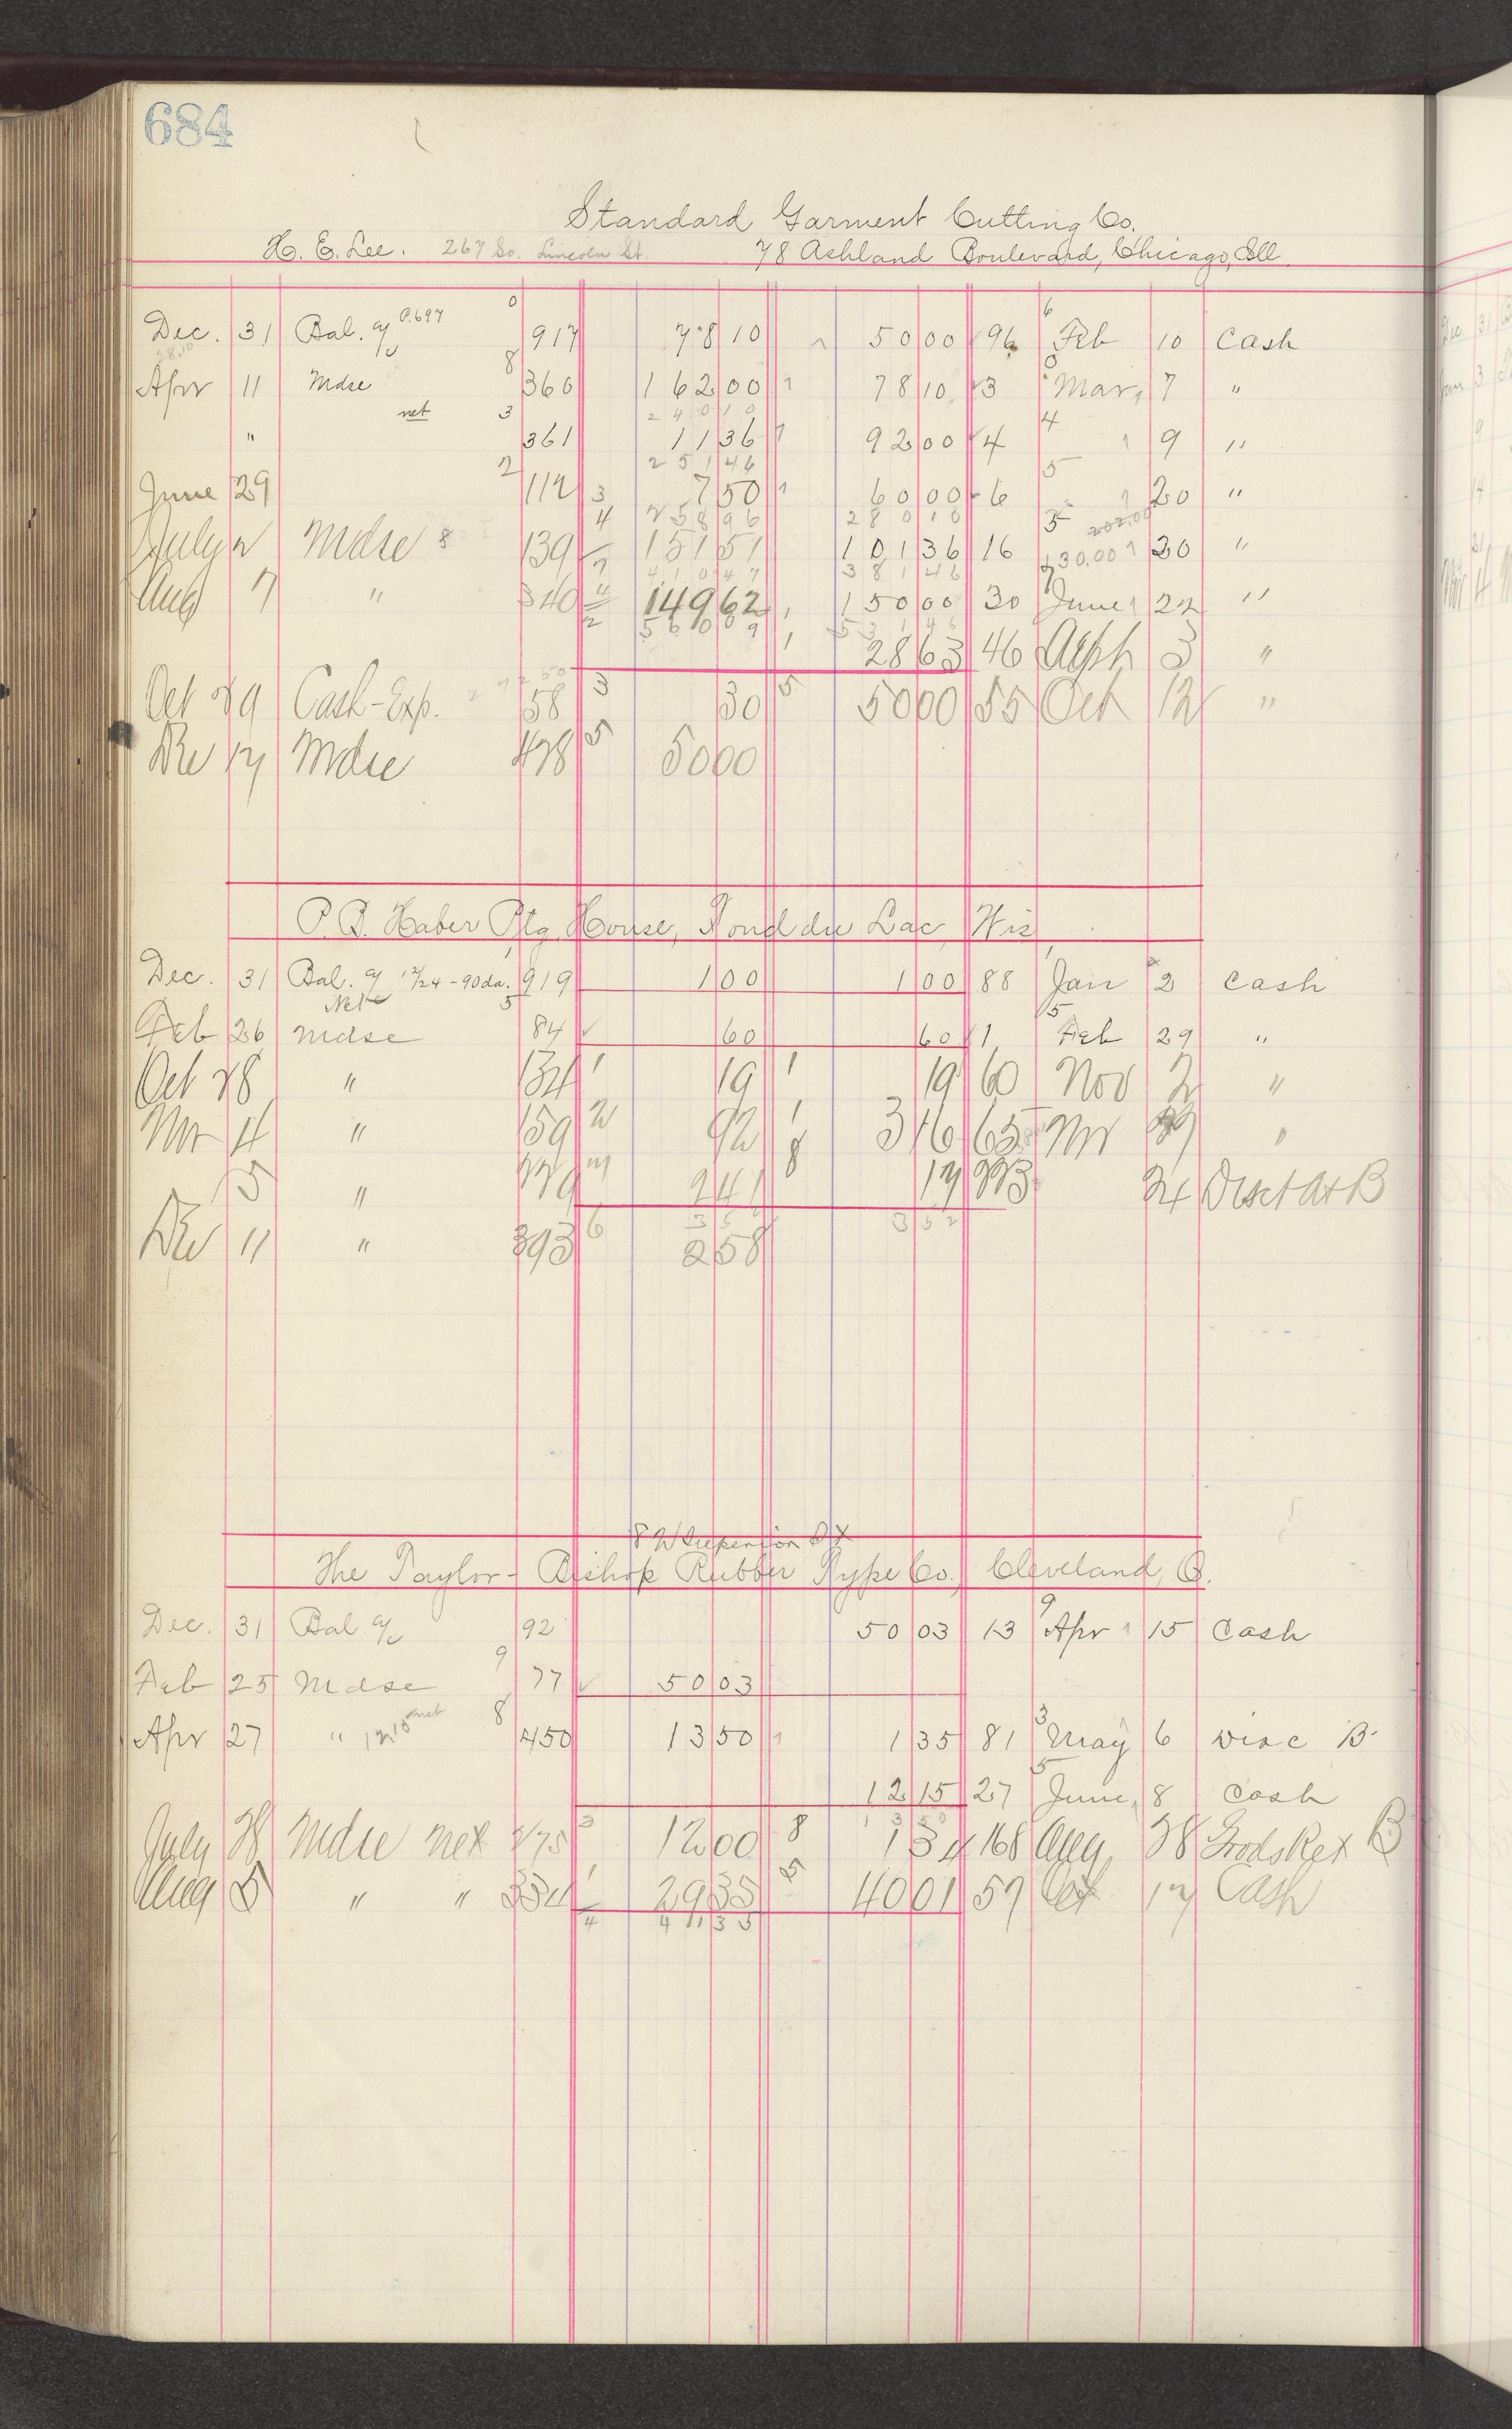 684
Standard Garment Cutting Co.
H. E. Lee. 267 So. Lincoln St. 78 Ashland Boulevard, Chicago, Ill.
Dec. 31 Bal. a/c P. 697 917 78 10 50 00 96 Feb 10 Cash
Apr 11 Mdse 360 162 00 78 10 3 Mar, 7 "
net 2 4 0 1 0
" 361 11 36 92 00 4 9 "
2 5 1 4 6
June 29 112 7 50 60 00 6 20 "
2 5 8 9 6 2 8 0 1 0
July 2 Mdse 8 139 151 51 101 36 16 30.00 20 "
4 1 0 4 7 3 8 1 4 6
Aug 7 " 340 149 62 150 00 30 June 22 "
5 6 0 0 9 5 3 1 4 6
28 63 46 Sept 3 "
Oct 29 Cash-Exp. 58 30 50 00 55 Oct 12 "
De 17 Mdse 478 50 00
P. B. Haber Ptg. House, Fond du Lac, Wis
Dec. 31 Bal. a/c 12/24 - 90 da. 919 1 00 1 00 88 Jan 2 Cash
Net
Feb 26 Mdse 84 60 60 1 Feb 29 "
Oct 28 " 134 19 19 60 Nov 2 "
Nov 4 " 159 92 3 16 65 Nov 29 "
5 " 2 41 17 24 Disct at B
3 5 2 3 5 2
Dec 11 " 393 2 58
8 W Superior St
The Taylor-Bishop Rubber Type Co., Cleveland, O.
Dec. 31 Bal. a/c 92 50 03 13 Apr 15 Cash
Feb 25 Mdse 77 50 03
Apr 27 " 12.15 net 450 13 50 1 35 81 May 6 Disc B.
12 15 27 June, 8 Cash
1 3 5 0
July 28 Mdse net 275 12 00 1 34 168 Aug 28 Gds Ret B
Aug 5 " " 334 29 35 40 01 59 Oct 17 Cash
4 1 3 5